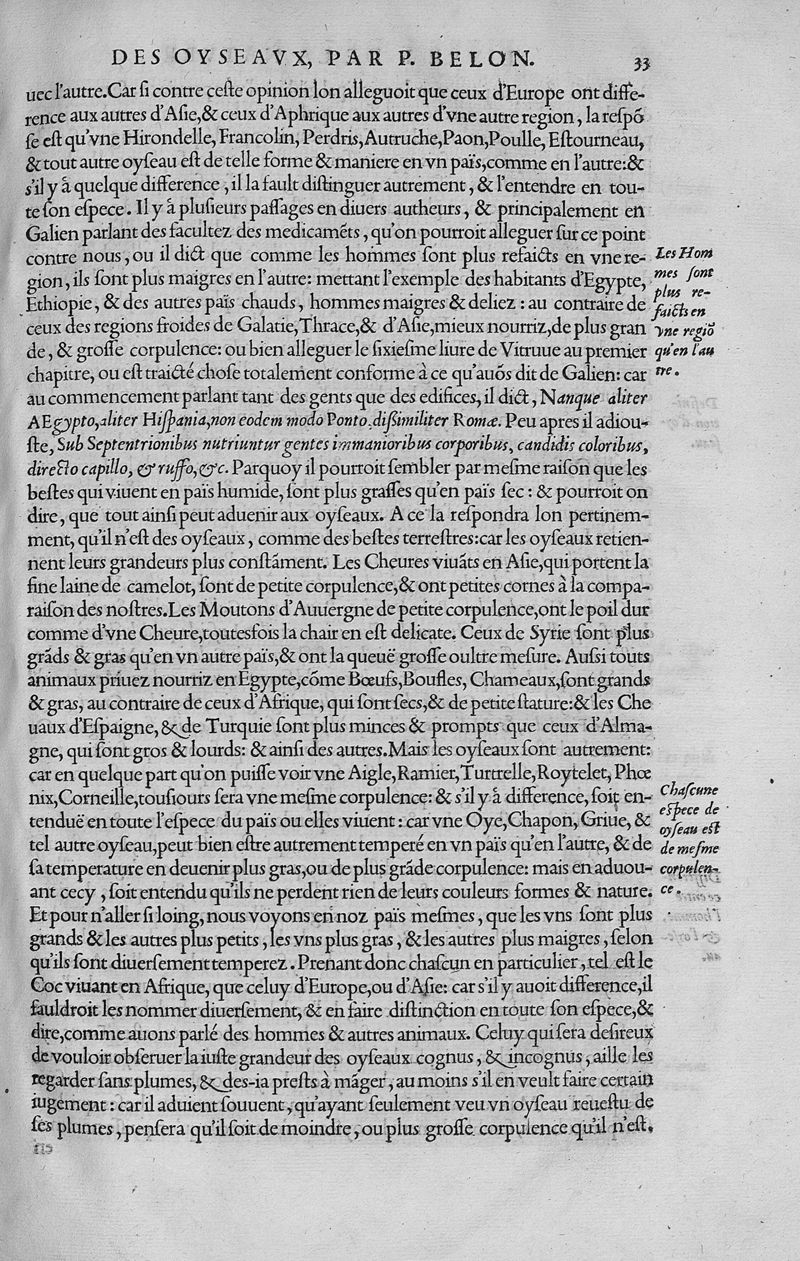 DES OYSEAVX, PAR P. BELON. 33
uec l'autre. Car ſi contre ceſte opinion lon alleguoit que ceux d'Europe ont diffe-
rence aux autres d'Aſie, & ceux d'Aphrique aux autres d'vne autre region, la reſpõ
ſe eſt qu'vne Hirondelle, Francolin, Perdris, Autruche, Paon, Poulle, Eſtourneau,
& tout autre oyſeau eſt de telle forme & maniere en vn païs, comme en l'autre: &
s'il y á quelque difference, il la fault diſtinguer autrement, & l'entendre en tou-
te ſon eſpece. Il y á pluſieurs paſſages en diuers autheurs, & principalement en
Galien parlant des facultez des medicamẽts, qu'on pourroit alleguer ſur ce point
contre nous, ou il dict que comme les hommes ſont plus refaicts en vne re-
gion, ils ſont plus maigres en l'autre: mettant l'exemple des habitants d'Egypte,
Ethiopie, & des autres païs chauds, hommes maigres & deliez: au contraire de
ceux des regions froides de Galatie, Thrace, & d'Aſie, mieux nourriz, de plus gran
de, & groſſe corpulence: ou bien alleguer le ſixieſme liure de Vitruue au premier
chapitre, ou eſt traicté choſe totalement conforme à ce qu'auõs dit de Galien: car
au commencement parlant tant des gents que des edifices, il dict, Nanque aliter
AEgypto, aliter Hiſpania, non eodem modo Ponto, diſsimiliter Romæ. Peu apres il adiou-
ſte, Sub Septentrionibus nutriuntur gentes immanioribus corporibus, candidis coloribus,
directo capillo, & ruffo, &c. Parquoy il pourroit ſembler par meſme raiſon que les
beſtes qui viuent en païs humide, ſont plus graſſes qu'en païs ſec: & pourroit on
dire, que tout ainſi peut aduenir aux oyſeaux. A ce la reſpondra lon pertinem-
ment, qu'il n'eſt des oyſeaux, comme des beſtes terreſtres: car les oyſeaux retien-
nent leurs grandeurs plus conſtãment. Les Cheures viuãts en Aſie, qui portent la
fine laine de camelot, ſont de petite corpulence, & ont petites cornes à la compa-
raiſon des noſtres. Les Moutons d'Auuergne de petite corpulence, ont le poil dur
comme d'vne Cheure, toutesfois la chair en eſt delicate. Ceux de Syrie ſont plus
grãds & gras qu'en vn autre païs, & ont la queuë groſſe oultre meſure. Auſsi touts
animaux priuez nourriz en Egypte, cõme Bœufs, Boufles, Chameaux, ſont grands
& gras, au contraire de ceux d'Afrique, qui ſont ſecs, & de petite ſtature: & les Che
uaux d'Eſpaigne, & de Turquie ſont plus minces & prompts que ceux d'Alma-
gne, qui ſont gros & lourds: & ainſi des autres. Mais les oyſeaux ſont autrement:
car en quelque part qu'on puiſſe voir vne Aigle, Ramier, Turtrelle, Roytelet, Phœ
nix, Corneille, touſiours ſera vne meſme corpulence: & s'il y á difference, ſoit en-
tenduë en toute l'eſpece du païs ou elles viuent: car vne Oye, Chapon, Griue, &
tel autre oyſeau, peut bien eſtre autrement temperé en vn païs qu'en l'autre, & de
ſa temperature en deuenir plus gras, ou de plus grãde corpulence: mais en aduou-
ant cecy, ſoit entendu qu'ils ne perdent rien de leurs couleurs formes & nature.
Et pour n'aller ſi loing, nous voyons en noz païs meſmes, que les vns ſont plus
grands & les autres plus petits, les vns plus gras, & les autres plus maigres, ſelon
qu'ils ſont diuerſement temperez. Prenant donc chaſcun en particulier, tel eſt le
Coc viuant en Afrique, que celuy d'Europe, ou d'Aſie: car s'il y auoit difference, il
fauldroit les nommer diuerſement, & en faire diſtinction en toute ſon eſpece, &
dire, comme auons parlé des hommes & autres animaux. Celuy qui ſera deſireux
de vouloir obſeruer la iuſte grandeur des oyſeaux cognus, & incognus, aille les
regarder ſans plumes, & des-ia preſts à mãger, au moins s'il en veult faire certain
iugement: car il aduient ſouuent, qu'ayant ſeulement veu vn oyſeau reueſtu de
ſes plumes, penſera qu'il ſoit de moindre, ou plus groſſe corpulence qu'il n'eſt.
Les Hom
mes ſont
plus re-
faicts en
vne regiõ
qu'en l'au
tre.
Chaſcune
eſpece de
oyſeau eſt
de meſme
corpulen-
ce.